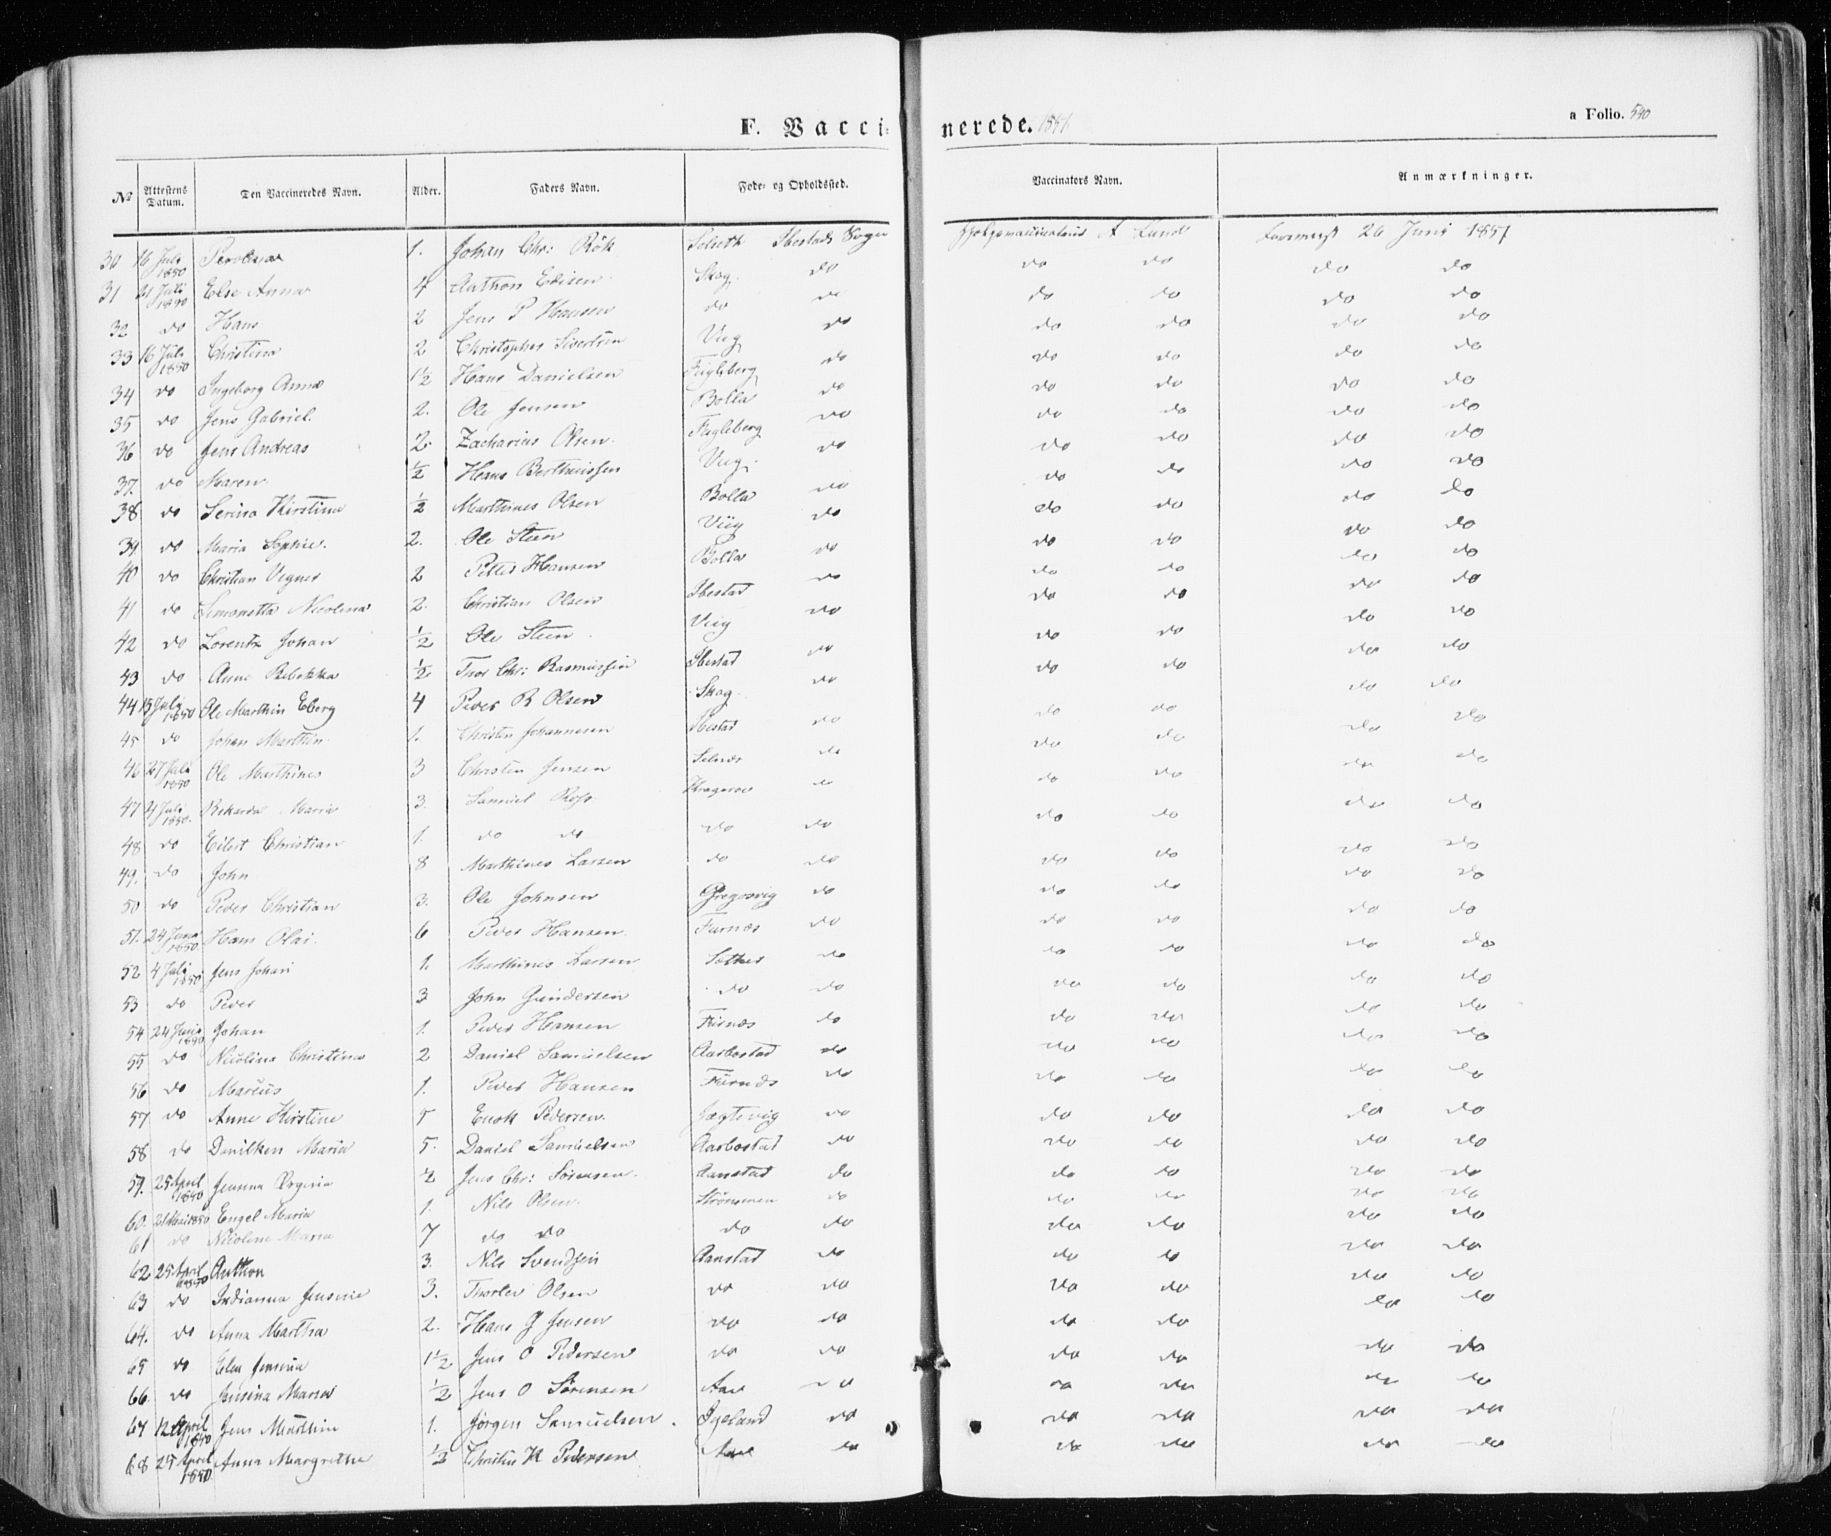 F. Vaccinerede. 1851
a Folio. 540
№ Attestens Datum. Den Vaccineredes Navn. Alder. Faders Navn. Føde- og Opholdssted. Vaccinators Navn. Anmærkninger.
30 16 Juli 1850 1. Johan Chr: Ibestads A Lund 26 Juni 1851
31 21 Juli 1850 Else Anna 4 Anthon Edisen Skog do do do do do
32 do Hans 2 Jens P Hansen do do do do do do
33 16 Juli 1850 Christina 2 Christopher Sivertsen Viig do do do do do
34 do Ingeborg Anna 1½ Hans Danielsen Fugleberg do do do do do
35 do Jens Gabriel. 2. Ole Jensen Bolla do do do do do
36 do Jens Andreas 2. Zacharias Olsen Fugleberg do do do do do
37. do Maren ½ Hans Berthiussen Viig do do do do do
38 do Serina Kirstina ½ Marthines Olsen Bolla do do do do do
39 do Maria Sophie. 2. Ole Steen Viig do do do do do
40 do Christian Vegner 2 Petter Hansen Bolla do do do do do
41 do Simonetta Nicolina 2. Christian Olsen Ibestad do do do do do
42 do Lorentz Johan ½ Ole Steen Viig do do do do do
43 do Anne Rebekka ½ Thor Chr: Rasmussen Ibestad do do do do do
44 15 Juli 1850 Ole Marthin Eberg 4 Peder R Olsen Skog do do do do do
45 do Johan Marthin 1. Christen Johannesen Ibestad do do do do do
46 27 Juli 1850 Ole Marthines 3 Christen Jensen Selnæs do do do do do
47 21 Juli 1850. Rikarda Maria 3. Samuel Ross Krageroe do do do do do
48 do Eilert Christian 1. do do do do do do do do
49. do John 8 Marthines Larsen do do do do do do
50 do Peder Christian 3. Ole Johnsen Gregosvig do do do do do
51. 24 Juni 1850 Hans Olai. 6 Peder Hansen. Furnæs do do do do do
52 4 Juli 1850 Jens Johan 1. Marthines Larsen do do do do do
53 do Peder 3 John Gundersen do do do do do do
54 24 Juni 1850 Johan 1. Peder Hansen Furnæs do do do do do
55 do Nicolina Christina 2 Daniel Samuelsen Aarbostad do do do do do
56 do Marcus 1. Peder Hansen Furnæs do do do do do
57 do Anne Kirstine 5 Enok Pedersen Jægtevig do do do do do
58 do Maria 5. Daniel Samuelsen Aarbostad do do do do do
59. 25 April 1850 ½ Jens Chr: Sørensen. Aanstad do do do do do
60. 21 Mai 1850 Engel Maria 1. Nils Olsen Strømmen do do do do do
61 do Nicoline Maria 7 do do do do do do do do
62 25 April 1850 Anthon 3. Nils Svendsen Aanstad do do do do do
63 do Indianna Jensine 3. Thorlev Olsen do do do do do do
64. do Anna Martha 2. Hans J Jensen do do do do do do
65 do Elen Jensina 1½ Jens O Pedersen do do do do do do
66 do Jensina Maria ½ Jens O Sørensen Aae do do do do do
67 12 April 1850 Jens Marthin 1. Jørgen Samuelsen. Øgeland do do do do do
68 25 April 1850 Anna Margrethe ½ Christen K Pedersen Aae do do do do do